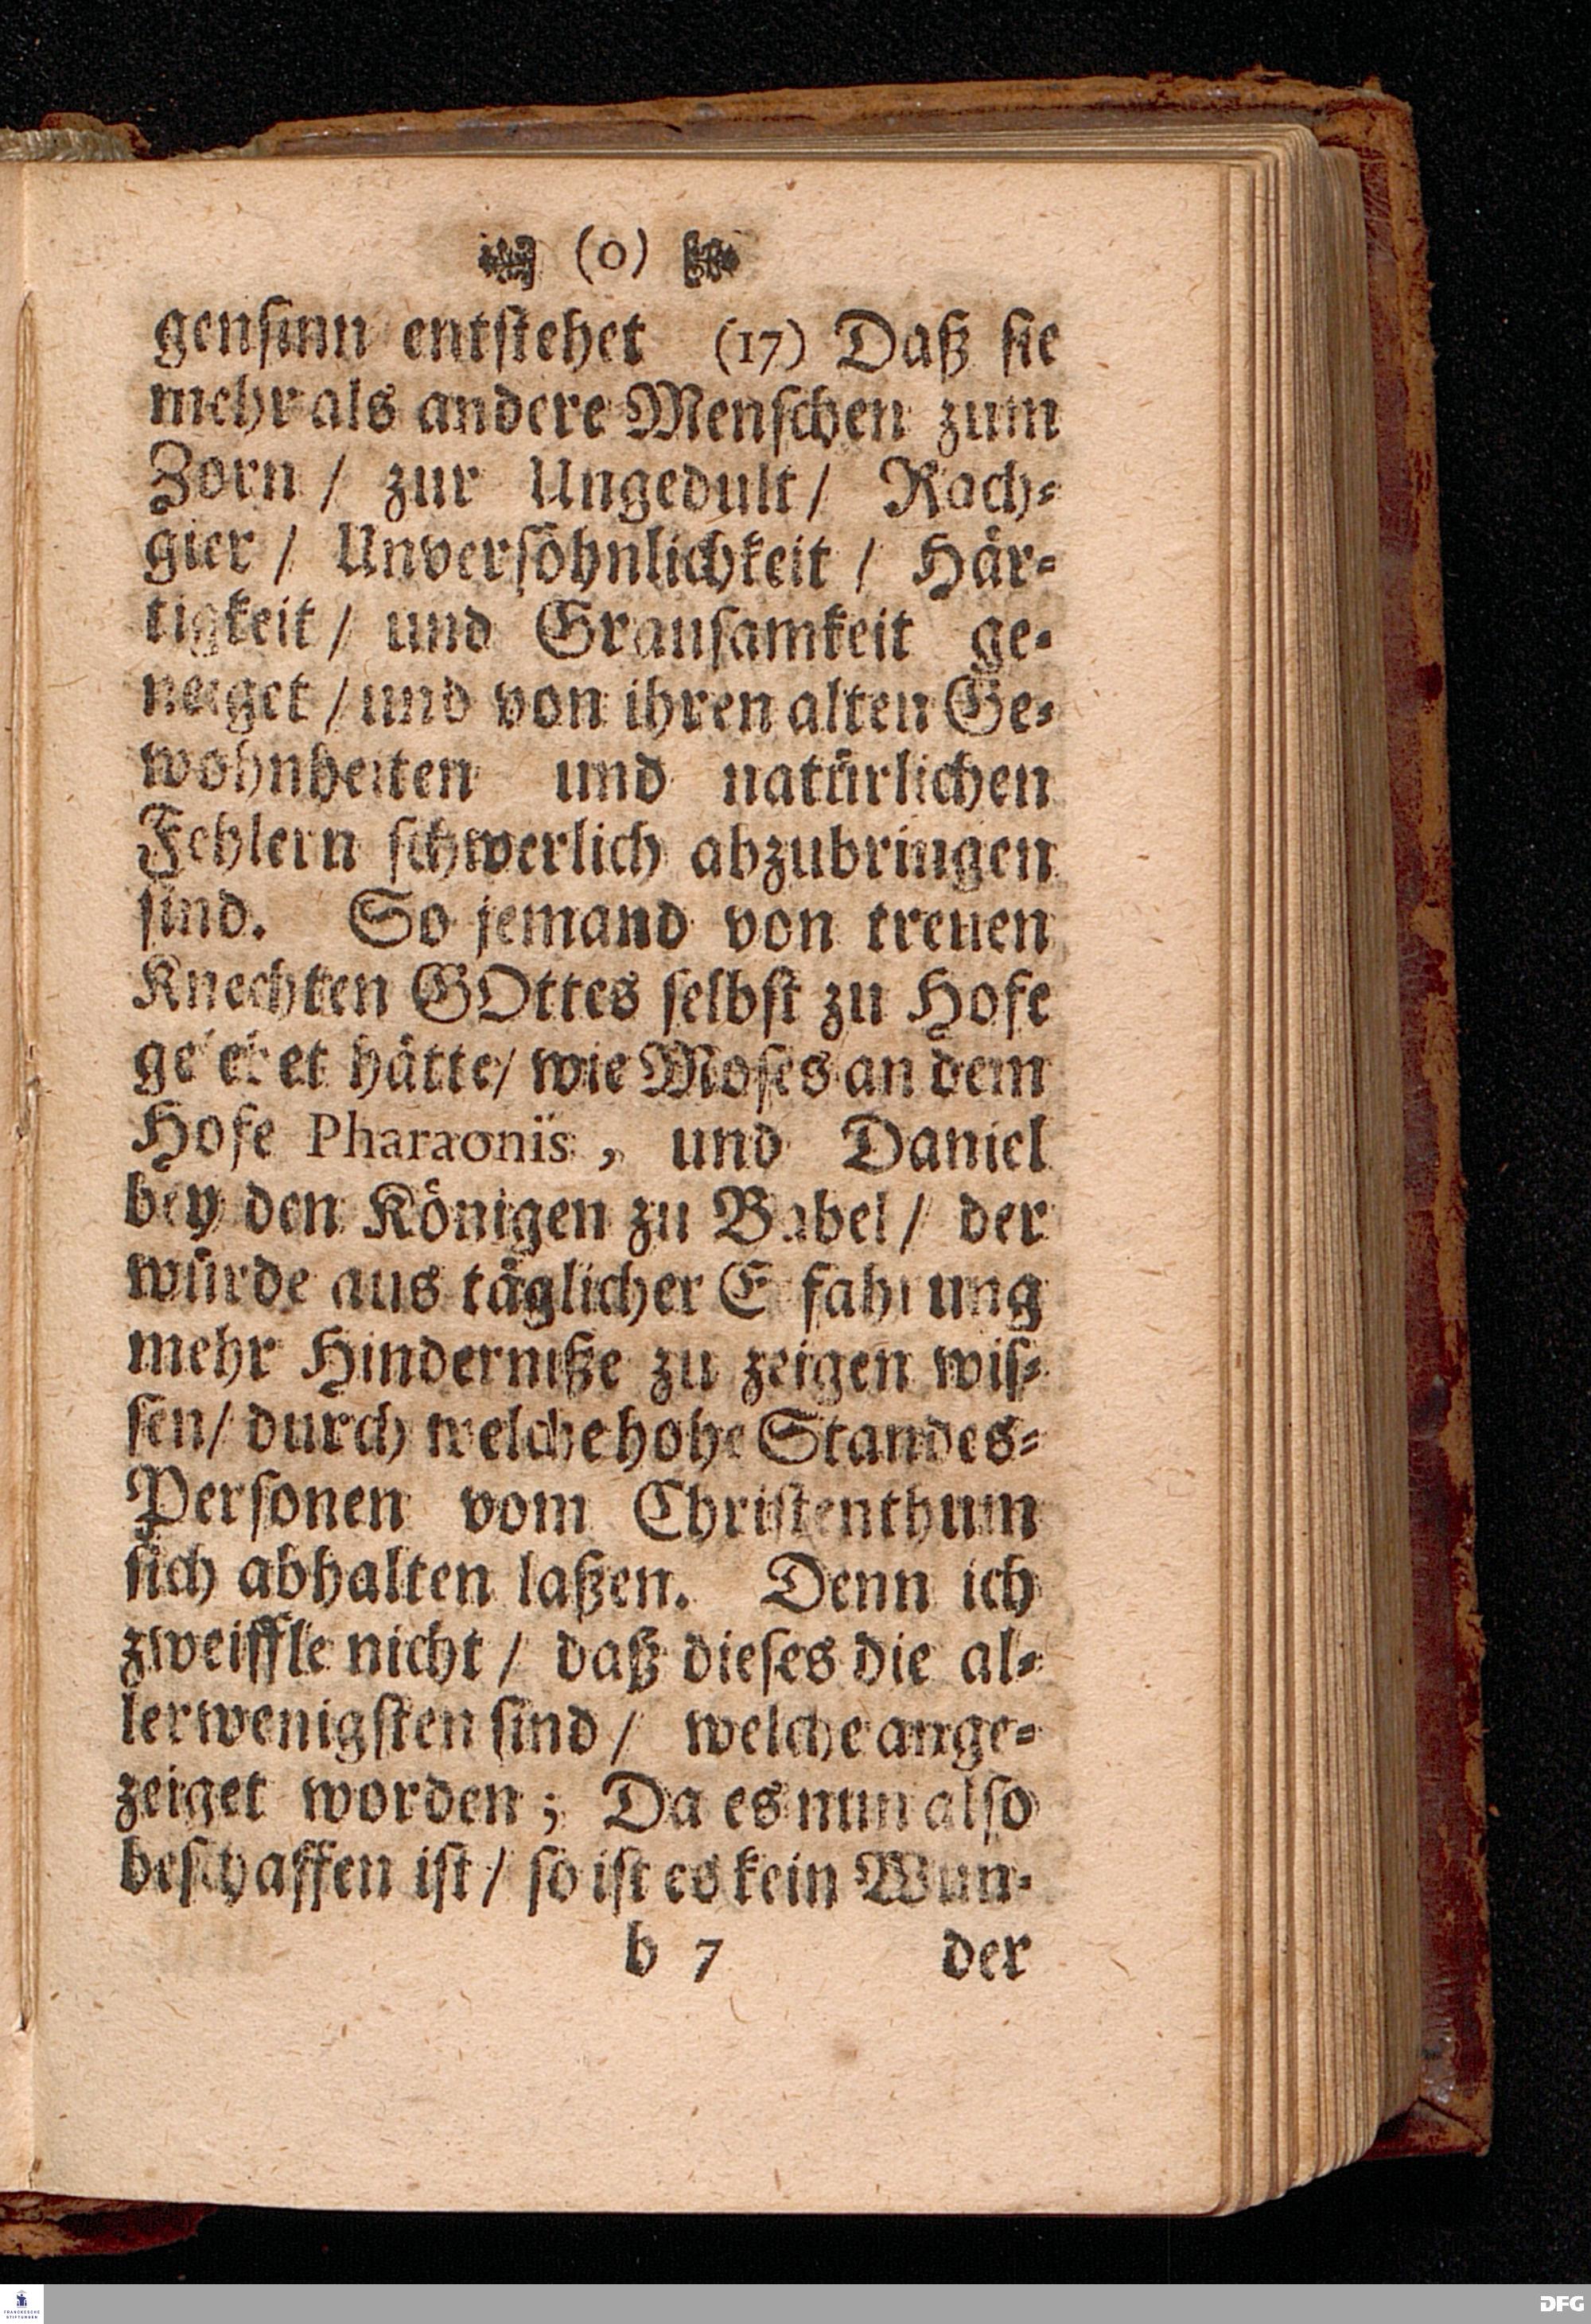 (0)
gensinn entstehet (17) Daß sie
mehr als andere Menschen zum
Zorn / zur Ungedult / Rach-
gier / Unversöhnlichkeit / Här-
tigkeit / und Grausamkeit ge-
neiget / und von ihren alten Ge-
wohnheiten und natürlichen
Fehlern schwerlich abzubringen
sind. So jemand von treuen
Knechten GOttes selbst zu Hofe
hätte / wie Moses an dem
Hofe Pharaonis, und Daniel
bey den Königen zu Babel / der
würde aus täglicher Erfahrung
mehr Hinderniße zu zeigen wis-
sen / durch welche hohe Standes-
Personen vom Christenthum
sich abhalten laßen. Denn ich
zweiffle nicht / daß dieses die al-
lerwenigsten sind / welche ange-
zeiget worden; Da es nun also
beschaffen ist / so ist es kein Wun-
b 7 der
FRANCKESCHE
STIFTUNGEN
DFG